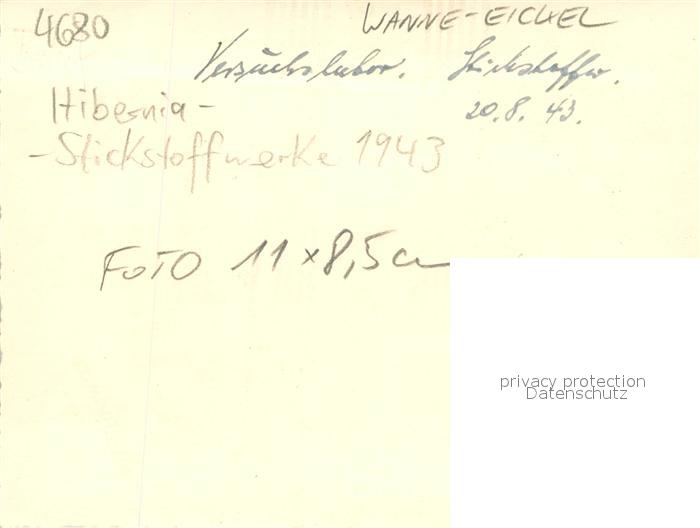 4680 WANNE-EICKEL
Versuchslabor. Stickstoffw.
Hibernia- 20.8.43.
-Stickstoffwerke 1943
FOTO 11x8,5cm
privacy protection
Datenschutz